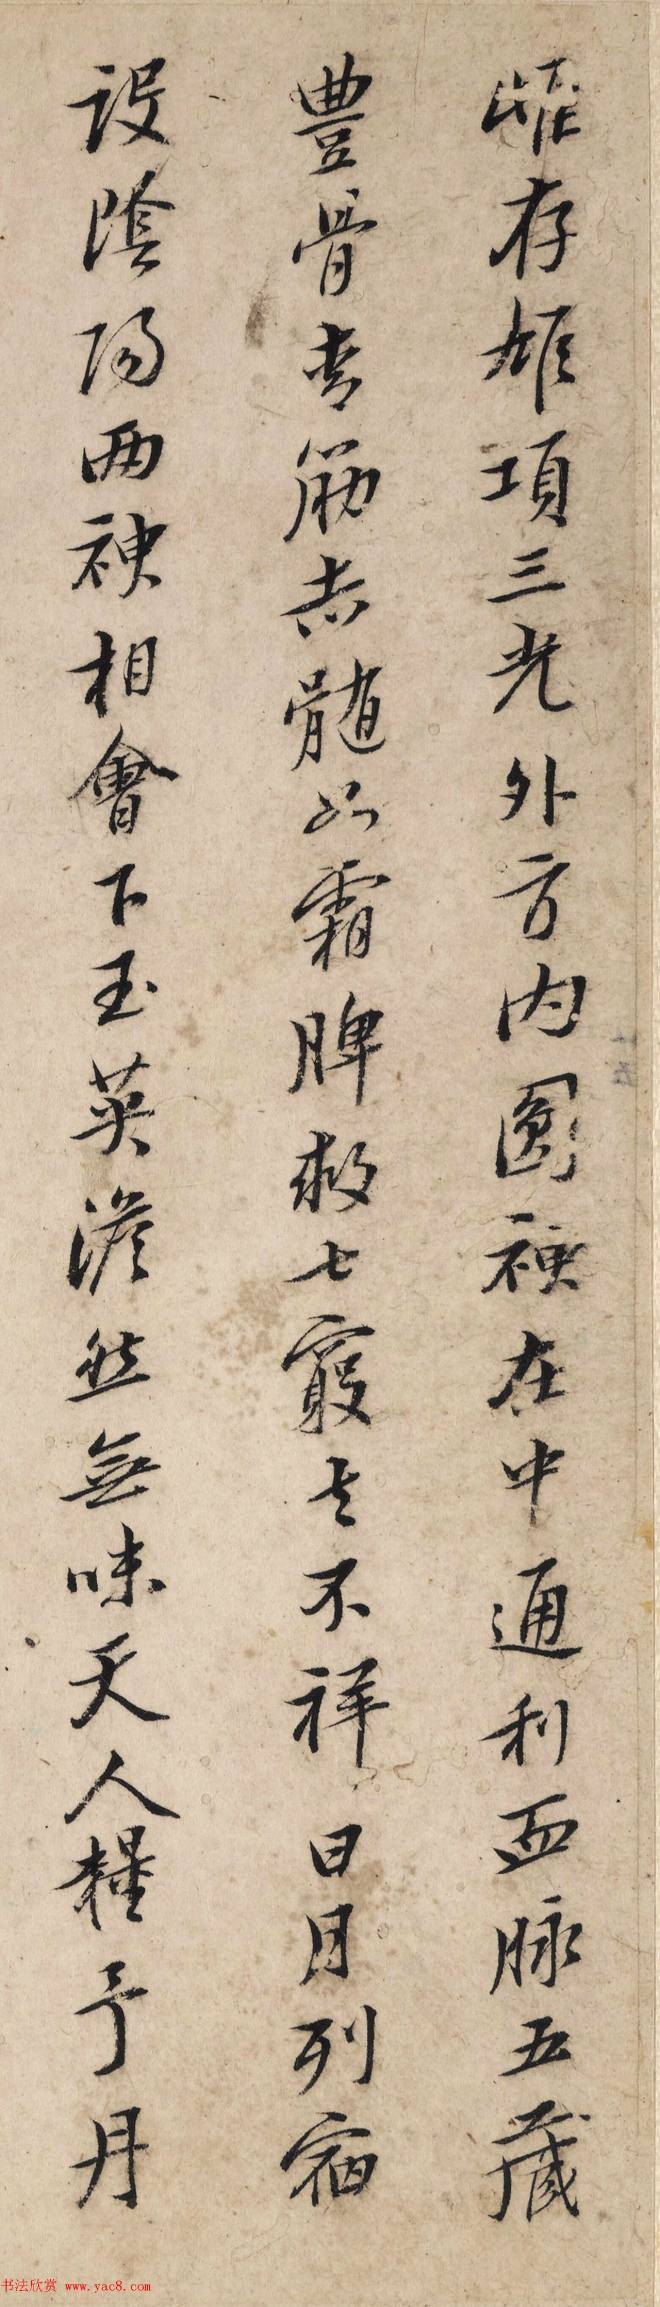 雌存雄項三光外方內圓神在中通利血脉五藏
豐骨青筋赤髓如霜脾救七竅去不祥日月列宿
設陰陽兩神相會下玉英淡然無味天人糧子丹
书法欣赏 www.yac8.com